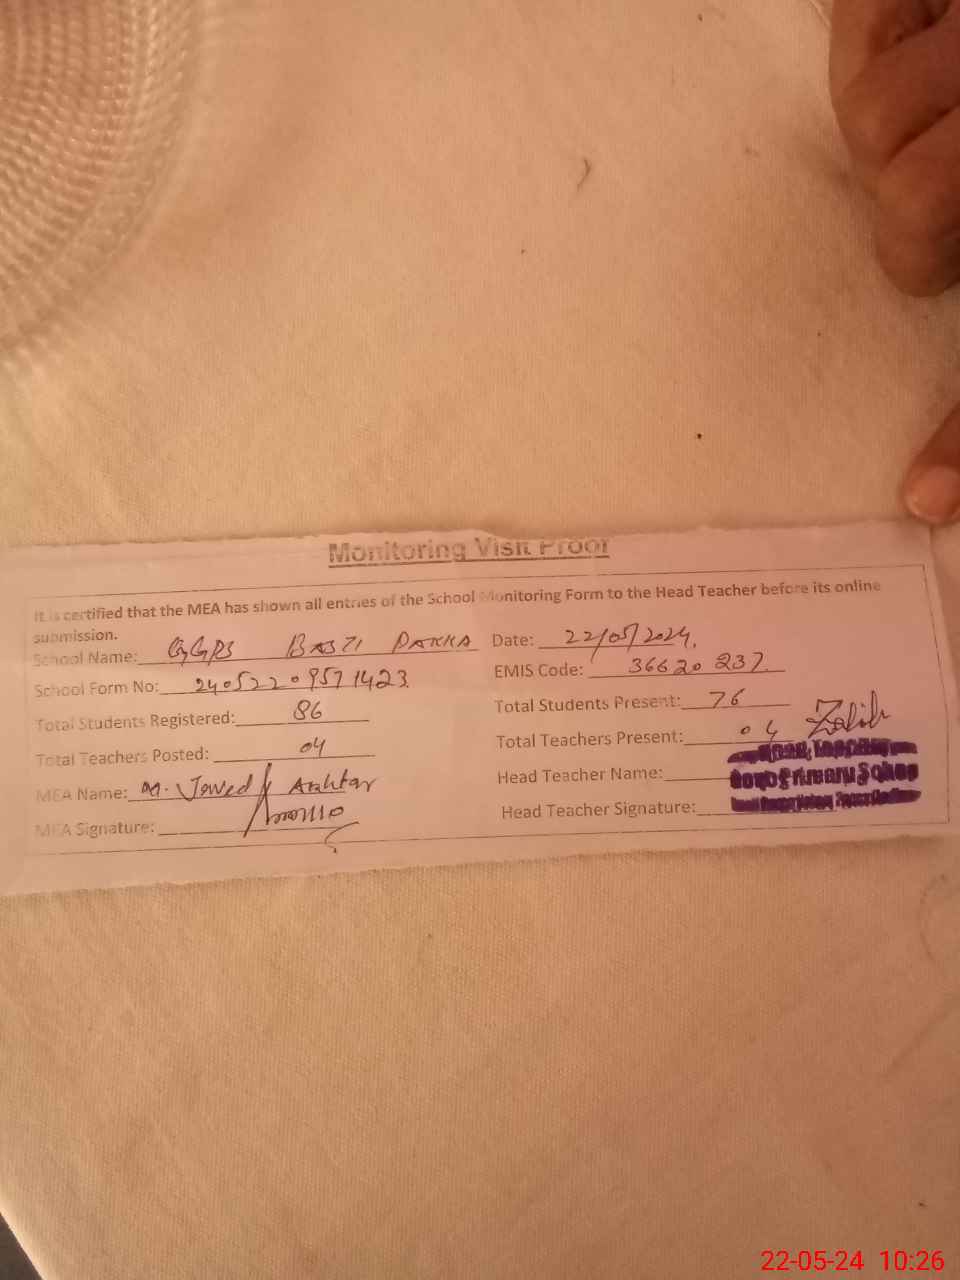 Monitoring Visit Proof
It is certified that the MEA has shown all entries of the School Monitoring Form to the Head Teacher before its online
submission.
School Name: GGPS BASTI PAKKA Date: 22/05/2024.
School Form No: 24052209571423. EMIS Code: 36620237.
Total Students Registered: 86 Total Students Present: 76
Total Teachers Posted: 04 Total Teachers Present: 04
MEA Name: M. Javed Akhtar Head Teacher Name:
MEA Signature: Head Teacher Signature:
Head Teacher
Primary School
22-05-24 10:26